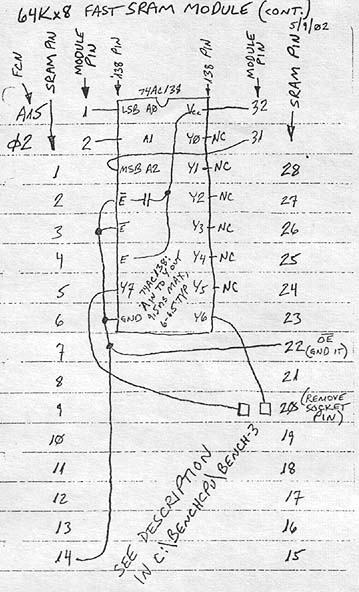 64K×8 FAST SRAM MODULE (CONT.)
5/9/02
FCN
SRAM PIN
MODULE PIN
138 PIN
138 PIN
MODULE PIN
SRAM PIN
74AC138
A15 1 LSB A0 Vcc 32
Φ2 2 A1 Y0 NC 31
1 MSB A2 Y1 NC 28
2 E̅ Y2 NC 27
3 E̅ Y3 NC 26
4 E Y4 NC 25
5 Y7 Y5 NC 24
6 GND Y6 23
74AC138:
A IN TO Y OUT
9.5nS MAX,
6-6.5 TYP
7 22 O̅E̅ (GND IT)
8 21
9 20 (REMOVE SOCKET PIN)
10 19
11 18
12 17
13 16
14 15
SEE DESCRIPTION
IN C:\BENCHCPU\BENCH-3